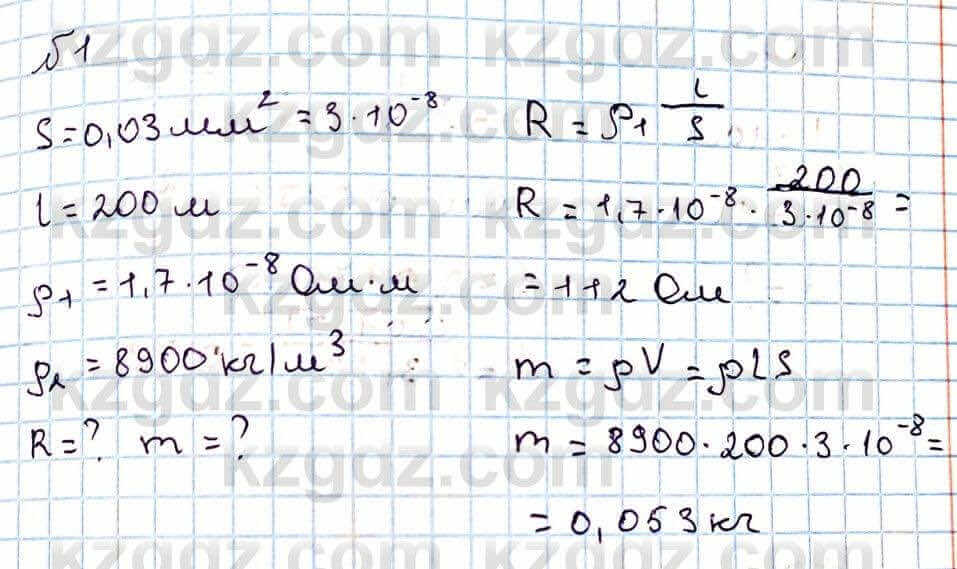 №1
S = 0,03 мм² = 3 · 10⁻⁸
l = 200 м
ρ₁ = 1,7 · 10⁻⁸ Ом · м
ρ₂ = 8900 кг/м³
R = ? m = ?
R = ρ₁ l/S
R = 1,7 · 10⁻⁸ · 200/3 · 10⁻⁸ =
= 112 Ом
m = ρV = ρLS
m = 8900 · 200 · 3 · 10⁻⁸ =
= 0,053 кг
kzgdz.com